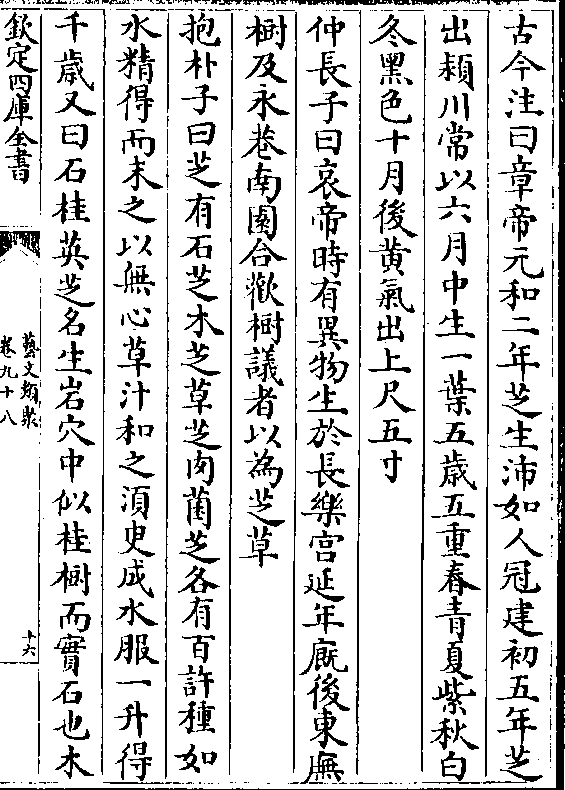 古今注曰章帝元和二年芝生沛如人冠建初五年芝
出潁川常以六月中生一葉五歲五重春青夏紫秋白
冬黑色十月後黄氣出上尺五寸
仲長子曰哀帝時有異物生於長樂宫延年廐後東廡
樹及永巷南園合歡樹議者以為芝草
抱朴子曰芝有石芝木芝草芝肉菌芝各有百許種如
水精得而末之以無心草汁和之湏史成水服一升得
千歲又曰石桂英芝名生岩穴中似桂樹而實石也木
欽定四庫全書
藝文類聚
卷九十八
十六